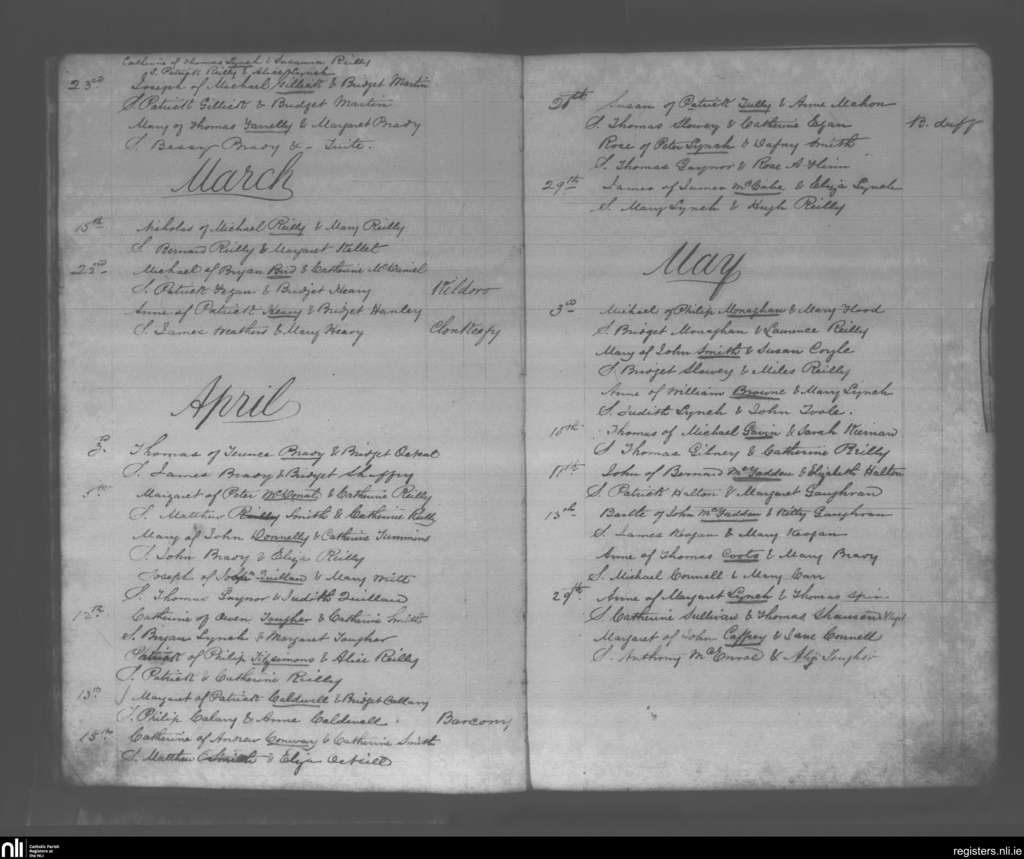 Catherine of Thomas Lynch & Susanna Reilly
S. Patrick Reilly & Alice Lynch
23rd Joseph of Michael Gillick & Bridget Martin
S. Patrick Gillick & Bridget Martin
Mary of Thomas Farrelly & Margaret Brady
S. Bessy Brady & - Tuite.
March
15th Nicholas of Michael Reilly & Mary Reilly
S. Bernard Reilly & Margaret Kellet
22nd Michael of Bryan Bird & Catherine McDaniel
S. Patrick Fegan & Bridget Heary Kildoro
Anne of Patrick Heary & Bridget Hanley
S. James Heathers & Mary Heary Clonkeefy
April
3d Thomas of Terence Brady & Bridget
S. James Brady & Bridget
Margaret of Peter & Catherine Reilly
S. Matthew Reilly Smith & Catherine Reilly
Mary of John Donnelly & Catherine Timmins
S. John Brady & Eliza Reilly
Joseph of Quillan & Mary
S. Thomas Gaynor & Judith Quillan
12th Catherine of Owen Tougher & Catherine Smith
S. Bryan Lynch & Margaret Tougher
Patrick of Philip Fitzsimons & Alice Reilly
S. Patrick & Catherine Reilly
13th Margaret of Patrick Caldwell & Bridget Callary
S. Philip Calary & Anne Caldwell. Barcony
15th Catherine of Andrew Conway & Catherine Smith
S. Matthew Smith & Eliza
26th Susan of Patrick Tully & Anne Mahon
S. Thomas Slowey & Catherine Egan B. duff
Rose of Peter Lynch & Smith
S. Thomas Gaynor & Rose A
29th James of James McCabe & Eliza Lynch
S. Mary Lynch & Hugh Reilly
May
3rd Michael of Philip Monaghan & Mary Flood
S. Bridget Monaghan & Laurence Reilly
Mary of John Smith & Susan Coyle
S. Bridget Slowey & Miles Reilly
Anne of William Browne & Mary Lynch
S. Judith Lynch & John Toole.
10th Thomas of Michael Gavin & Sarah Kiernan
S. Thomas Gilney & Catherine Reilly
11th John of Bernard McFadden & Elizabeth Halton
S. Patrick Halton & Margaret Gaughran
13th Bartle of John McFadden & Kitty Gaughran
S. James Keogan & Mary Keogan
Anne of Thomas Coote & Mary Brady
S. Michael Connell & Mary Carr
29th Anne of Margaret Lynch & Thomas
S. Catherine Sullivan & Thomas
Margaret of John Caffrey & Jane Connell
S. Anthony McEnroe & Tougher
nli
Catholic Parish
Registers at
the NLI
registers.nli.ie